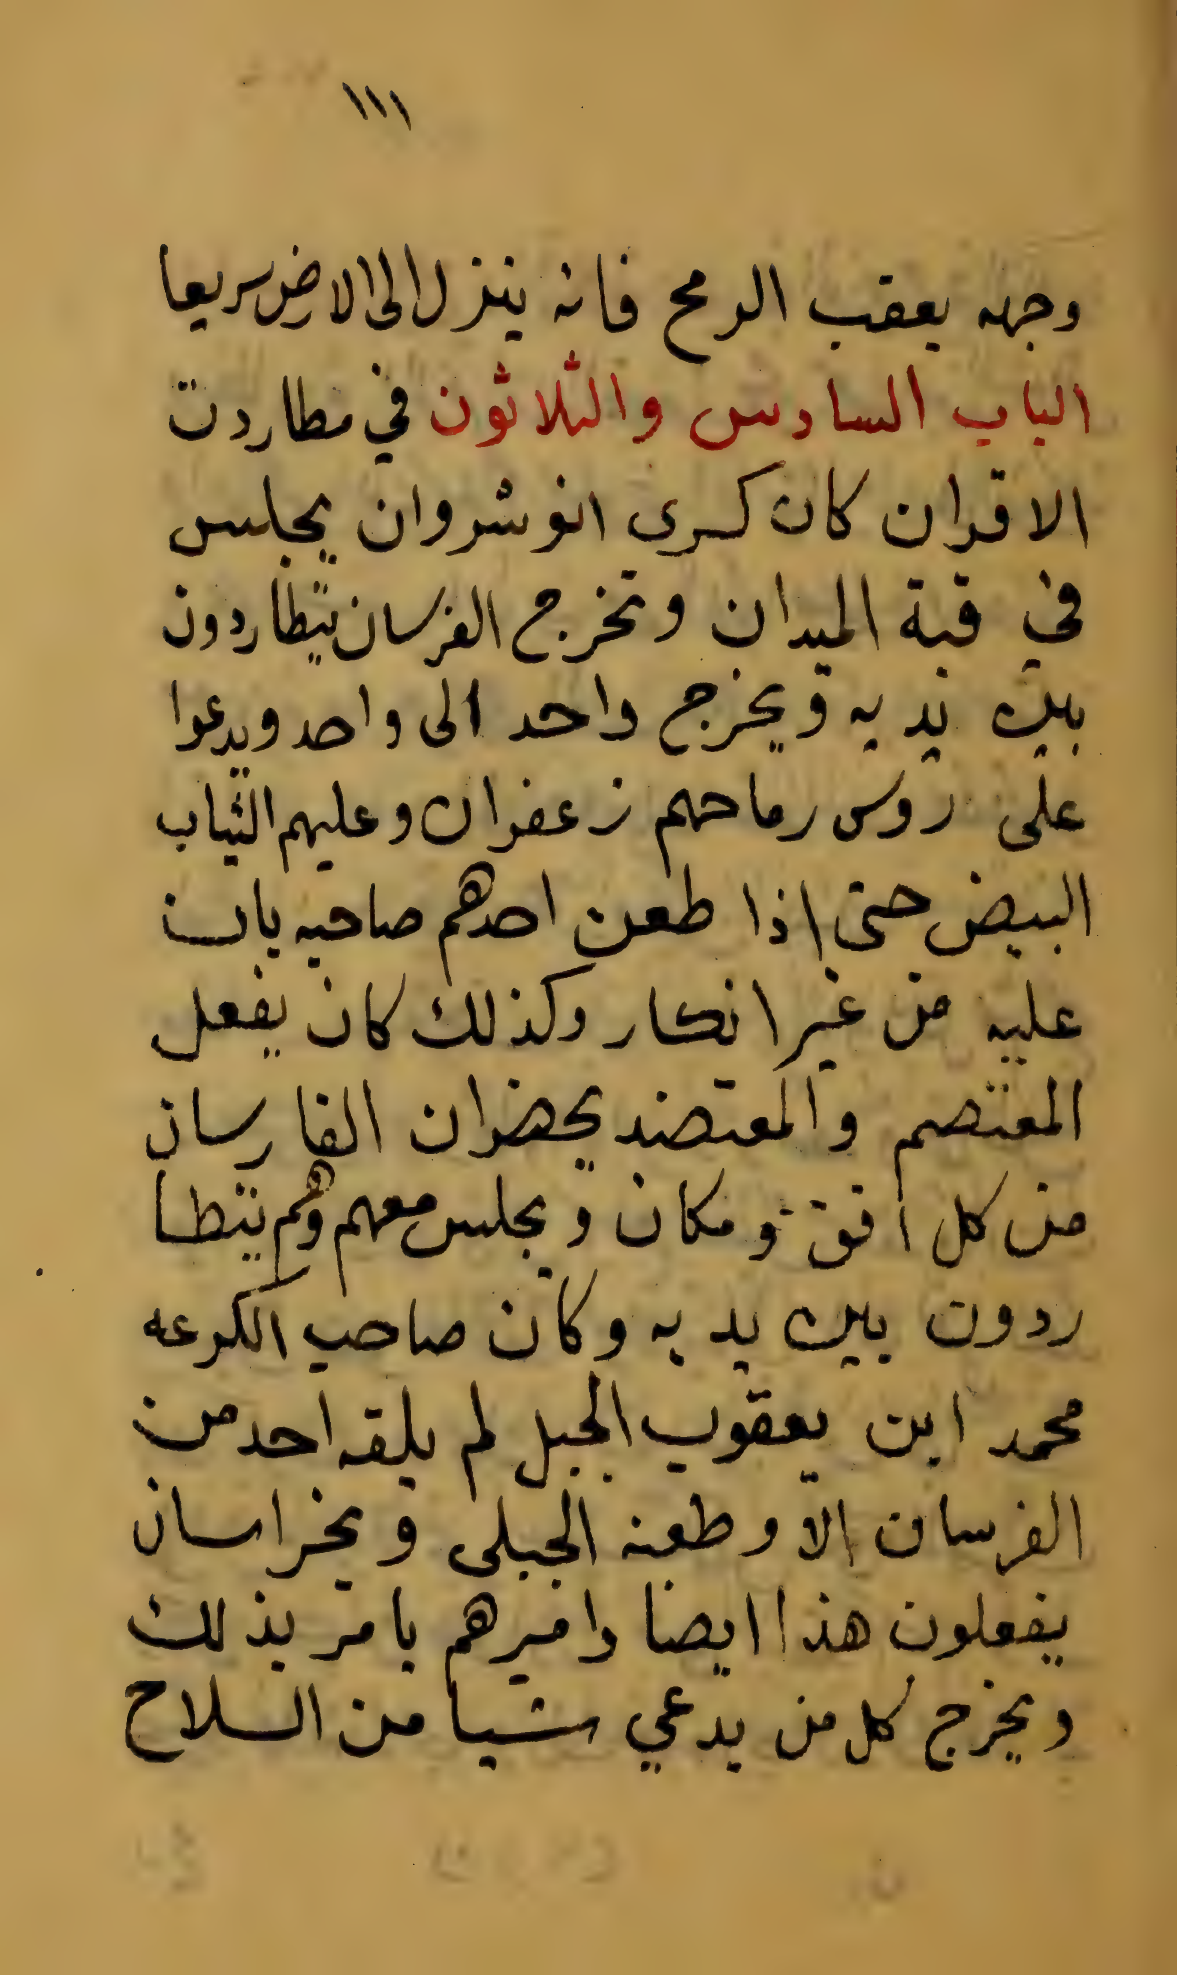 ١١١
وجهه بعقب الرمح فانه ينزل الى الارض سريعا
الباب السادس والثلاثون في مطاردت
الاقران كان كسرى انوشروان يجلس
في قبة الميدان وتخرج الفرسان يتطاردون
بين يديه ويخرج واحد الى واحد ويدعوا
على روس رماحهم زعفران وعليهم الثياب
البيض حتى اذا طعن احدهم صاحبه بان
عليه من غير انكار وكذلك كان يفعل
المعتصم والمعتضد يحضران الفارسان
من كل افق ومكان ويجلس معهم وهم يتطا
ردون بين يديه وكان صاحب الكرعه
محمد ابن يعقوب الجبل لم يلقه احد من
الفرسان الا وطعنه الجبلى وبخراسان
يفعلون هذا ايضا واميرهم يامر بذلك
ويخرج كل من يدعي شيا من السلاح